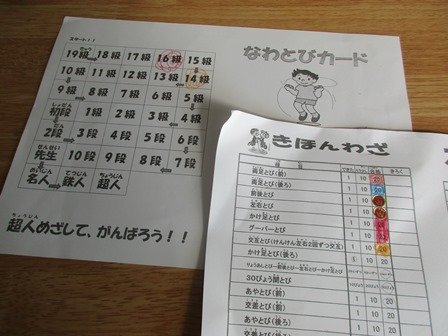 スタート！！
なわとびカード
19級 18級 17級 16級 15級
10級 11級 12級 13級 14級
9級 8級 7級 6級 5級
初段 1級 2級 3級 4級
2段 3段 4段 5段 6段
先生 10段 9段 8段 7段
名人 鉄人 超人
超人めざして、がんばろう！！
きほんわざ
両足とび（前） 1 10 20
両足とび（後ろ） 1 10 20
前後とび 1 10 20
左右とび 1 10 20
かけ足とび 1 10 20
グーパーとび 1 10 20
交互とび（けんけん左右2回ずつ交互） 1 10 20
かけ足とび（後ろ） 1 10 20
りょうあしとび→前後とび→左右とび→かけ足とび
30びょう間とび
あやとび（前） 1 10 20
交差とび（前） 1 10 20
あやとび（後ろ） 1 10 20
交差とび（後ろ） 1 10 20